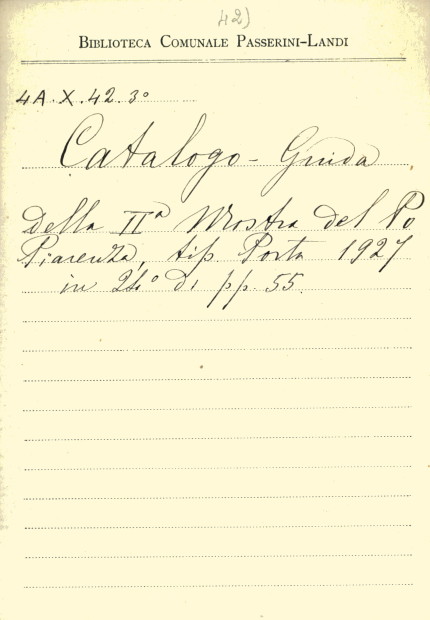 42)
Biblioteca Comunale Passerini-Landi
4A.X.42.3°
Catalogo-Guida
della IIª Mostra del Po
Piacenza, tip Porta 1927
in 24° di pp. 55.